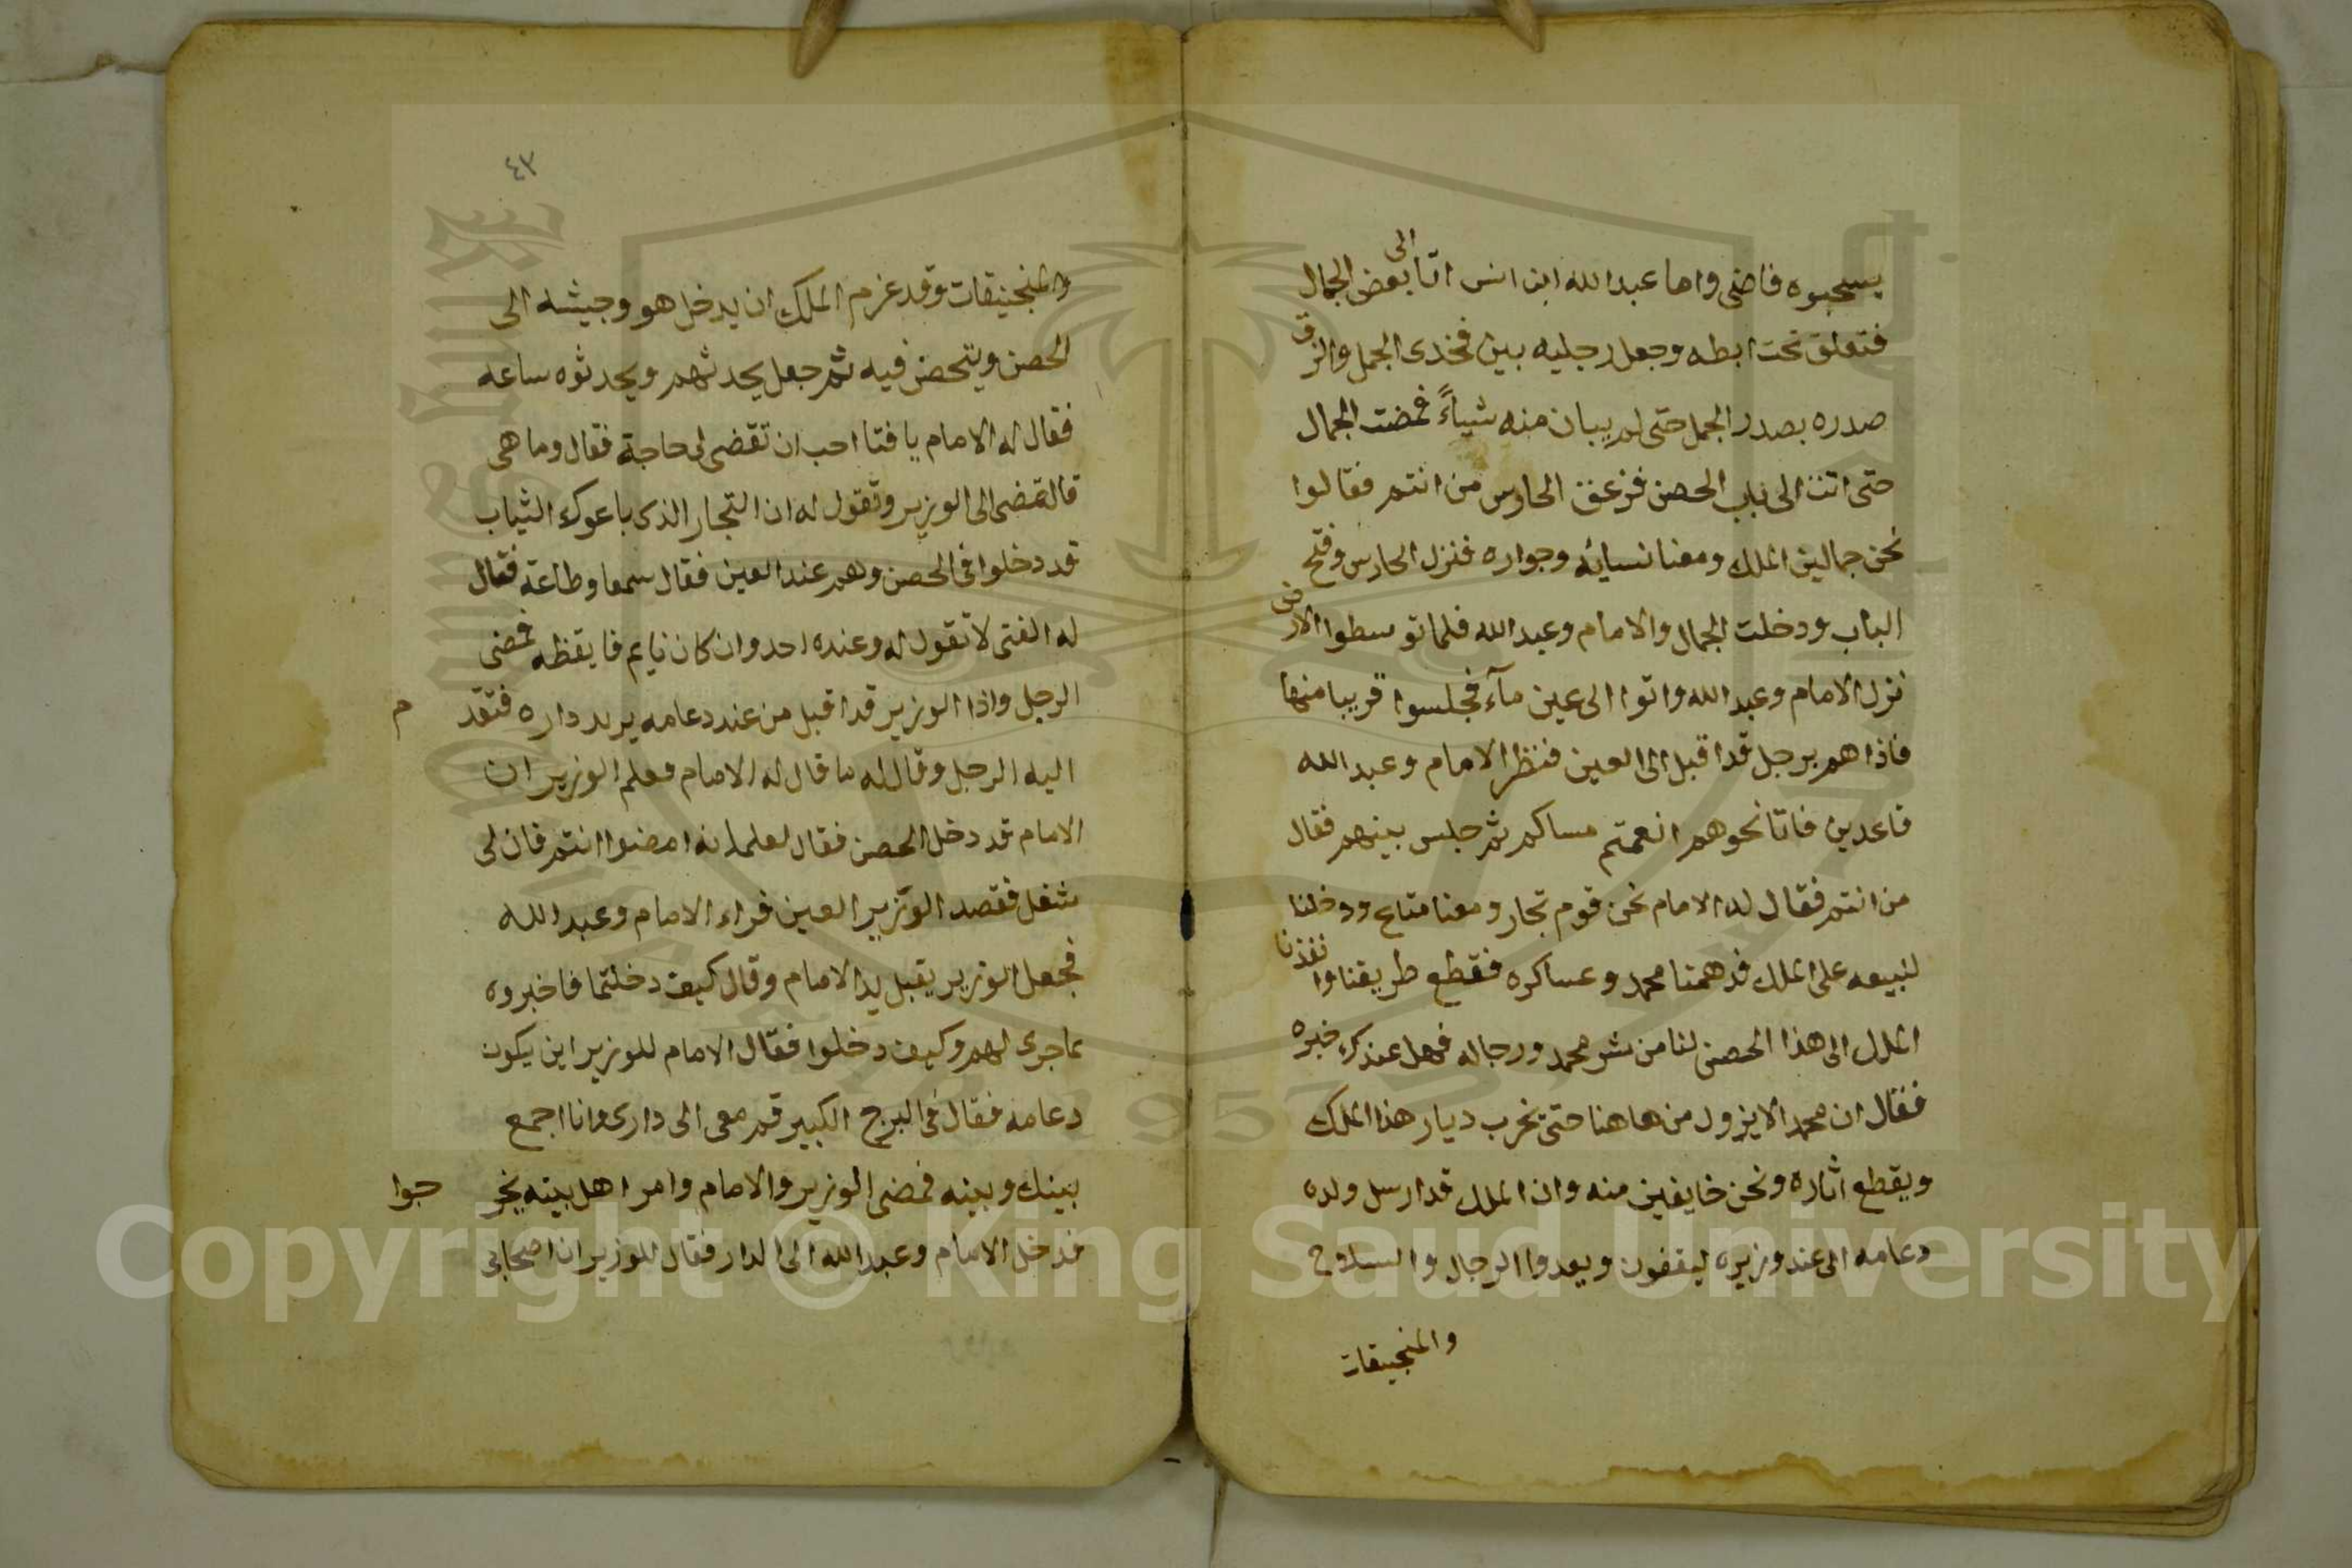 يسحبوه فامضى واما عبدالله ابن انس اتا الى بعض الجمال
فتعلق تحت ابطه وجعل رجليه بين فخدى الجمل والزق
صدره بصدر الجمل حتى لم يبان منه شياءً فمضت الجمال
حتى اتت الى باب الحصن فزعق الحارس من انتم فقالوا
نحن جمالين الملك ومعنا نسايه وجواره فنزل الحارس وفتح
الباب ودخلت الجمال والامام وعبد الله فلما توسطوا الارض
نزل الامام وعبد الله واتوا الى عين مآء فجلسوا قريبا منها
فاذا هم برجل قد اقبل الى العين فنظر الامام وعبد الله
قاعدين فاتا نحوهم انعمتم مساكم ثم جلس بينهم فقال
من انتم فقال له الامام نحن قوم تجار ومعنا متاع ودخلنا
لنبيعه على الملك فدهمتنا محمد وعساكره فقطع طريقنا وانفذنا
الملك الى هذا الحصن لنا من شر محمد ورجاله فهل عندك خبره
فقال ان محمد الا يزول من هاهنا حتى يخرب ديار هذا الملك
ويقطع اثاره ونحن خايفين منه وان الملك قد ارسل ولده
دعامه الى عند وزيره ليقفون ويعدوا الرجال والسلاح
والمنجنيقات
٤٣
والمنجنيقات وقد عزم الملك ان يدخل هو وجيشه الى
الحصن ويتحصن فيه ثم جعل يحدثهم ويحدثوه ساعه
فقال له الامام يا فتا احب ان تقضى لى حاجة فقال وما هى
قال تمضى الى الوزير وتقول له ان التجار الذى باعوك الثياب
قد دخلوا فى الحصن وهم عند العين فقال سمعا وطاعة فقال
له الفتى لا تقول له وعنده احد وان كان نايم فايقظه فمضى
الرجل واذا الوزير قد اقبل من عند دعامه يريد داره فتقد م
اليه الرجل وقال له ما قال له الامام فعلم الوزير ان
الامام قد دخل الحصن فقال لغلمانه امضوا انتم فان لى
شغل فقصد الوزير العين فراء الامام وعبد الله
فجعل الوزير يقبل يد الامام وقال كيف دخلتما فاخبروه
بما جرى لهم وكيف دخلوا فقال الامام للوزير اين يكون
دعامه فقال فى البرج الكبير قم معى الى دارى وانا اجمع
بينك وبينه فمضى الوزير والامام وامر اهل بيته يخر جوا
فدخل الامام وعبد الله الى الدار فقال للوزير ان اصحابى
Copyright © King Saud University